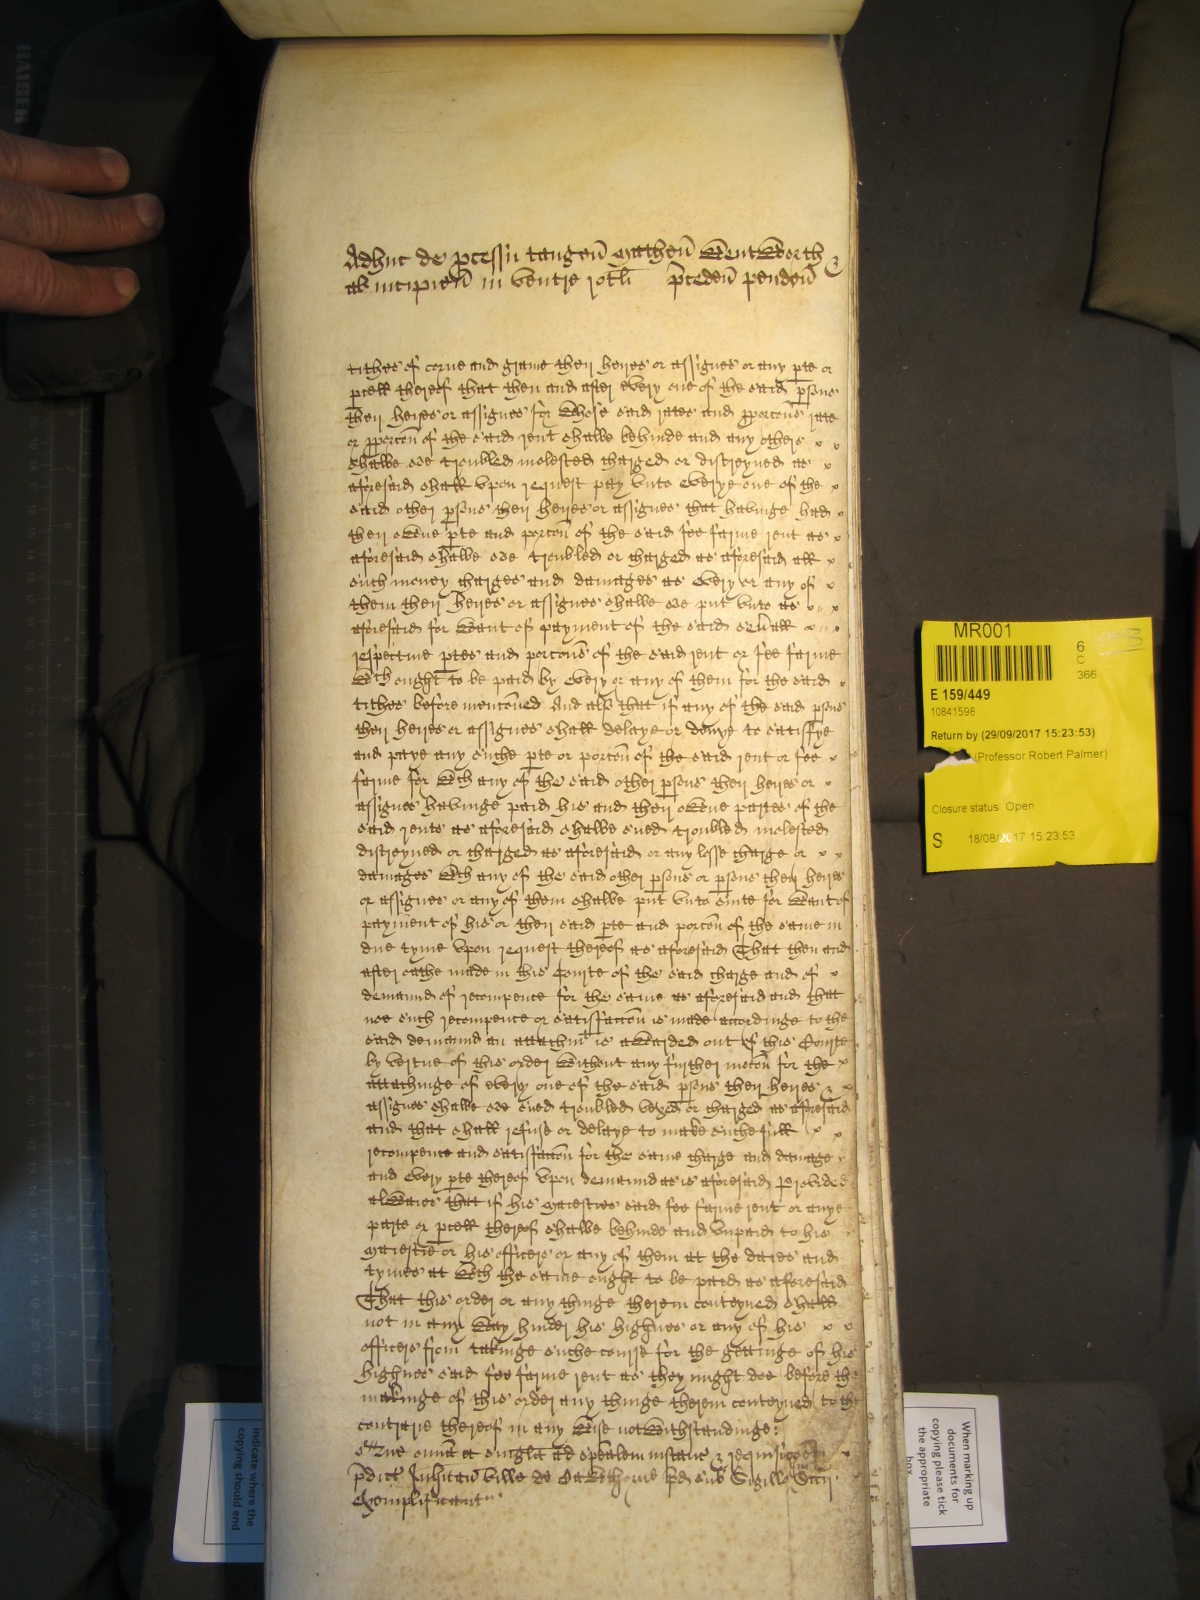 Adhuc de pcessu tangeñ Matheũ Wentworth &
ab incipieñ in ventre rotłi p̃cedeñ pendeñ
tithes of corne and graine their heyres or assignes or any pte or
pcell thereof that then and after every one of the said psons
their heyres or assignes for whose said rates and pporcoñs rate
or pporcoñ of the said rent shalbe behinde and any others
shalbe soe troubled molested charged or distreyned as
aforesaid shall vpon request pay vnto everye one of the
said other psons their heyres or assignes that havinge had
their owne pte and porcoñ of the said fee farme rent as
aforesaid shalbe soe troubled or charged as aforesaid all
such money charges and damages as every or any of
them their heyres or assignes shalbe soe put vnto as
aforesaid for want of payment of the said seũall
respective ptes and porcoñs of the said rent or fee farme
wch ought to be paid by every or any of them for the said
tithes before mencoñed And also that if any of the said psons
their heyres or assignes shall delaye or denye to satisfye
and paye any suche pte or porcoñ of the said rent or fee
farme for wch any of the said other psons their heyres or
assignes havinge paid his and their owne partes of the
said rents as aforesaid shalbe sued troubled molested
distreyned or charged as aforesaid or any losse charge or
damages wch any of the said other psons or psons their heyres
or assignes or any of them shalbe put vnto suite for want of
payment of his or their said pte and porcoñ of the same in
due tyme vpon request thereof as aforesaid That then and
after oathe made in this Courte of the said charge and of
demaund of recompence for the same as aforesaid and that
noe such recompence or satisfaccoñ is made accordinge to the
said demaund an attachmt is awarded out of this Courte
by vertue of this order without any further mocoñ for the
attachinge of every one of the said psons their heyres &
assignes shalbe soe sued troubled vexed or charged as aforesaid
and that shall refuse or delaye to make suche full
recompence and satisfaccoñ for the same charge and damage
and every pte thereof vpon demaund as is aforesaid Provided
alwaies that if his Maiesties said fee farme rent or anye
parte or pcell thereof shalbe behinde and vnpaid to his
Maiestie or his officers or any of them at the daies and
tymes at wch the same ought to be paid as aforesaid
That this order or any thinge therein conteyned shall
not in any way hinder his highnes or any of his
officers from takinge suche course for the gettinge of his
highnes said fee farme rent as they might doe before the
makinge of this order any thinge therein conteyned to the
contrarie thereof in any wise notwithstandinge:
Que om̃ia & singła ad speãlem instanc̃ & requisicoẽm
p̃dict̃ Inhitañ ville de sub Sigillo Scc̃ii
MR001
6
C
366
E 159/449
10841598
Return by (29/09/2017 15:23:53)
(Professor Robert Palmer)
Closure status: Open
S 18/08/2017 15:23:53
indicate where the
copying should end
When marking up
documents for
copying please tick
the appropriate
box.